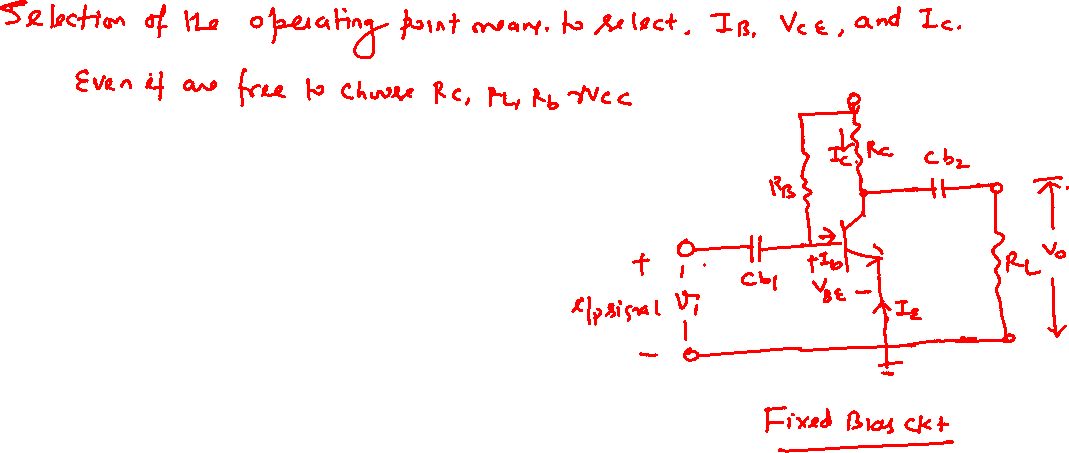 Selection of the operating point means to select, IB, VCE, and Ic.
Even if are free to choose RC, RL, Rb & VCC
Ic
Rc
Cb2
RB
+
Cb1
+ Ib
VBE -
RL
Vo
i/p signal Vi
IE
-
Fixed Bias ckt